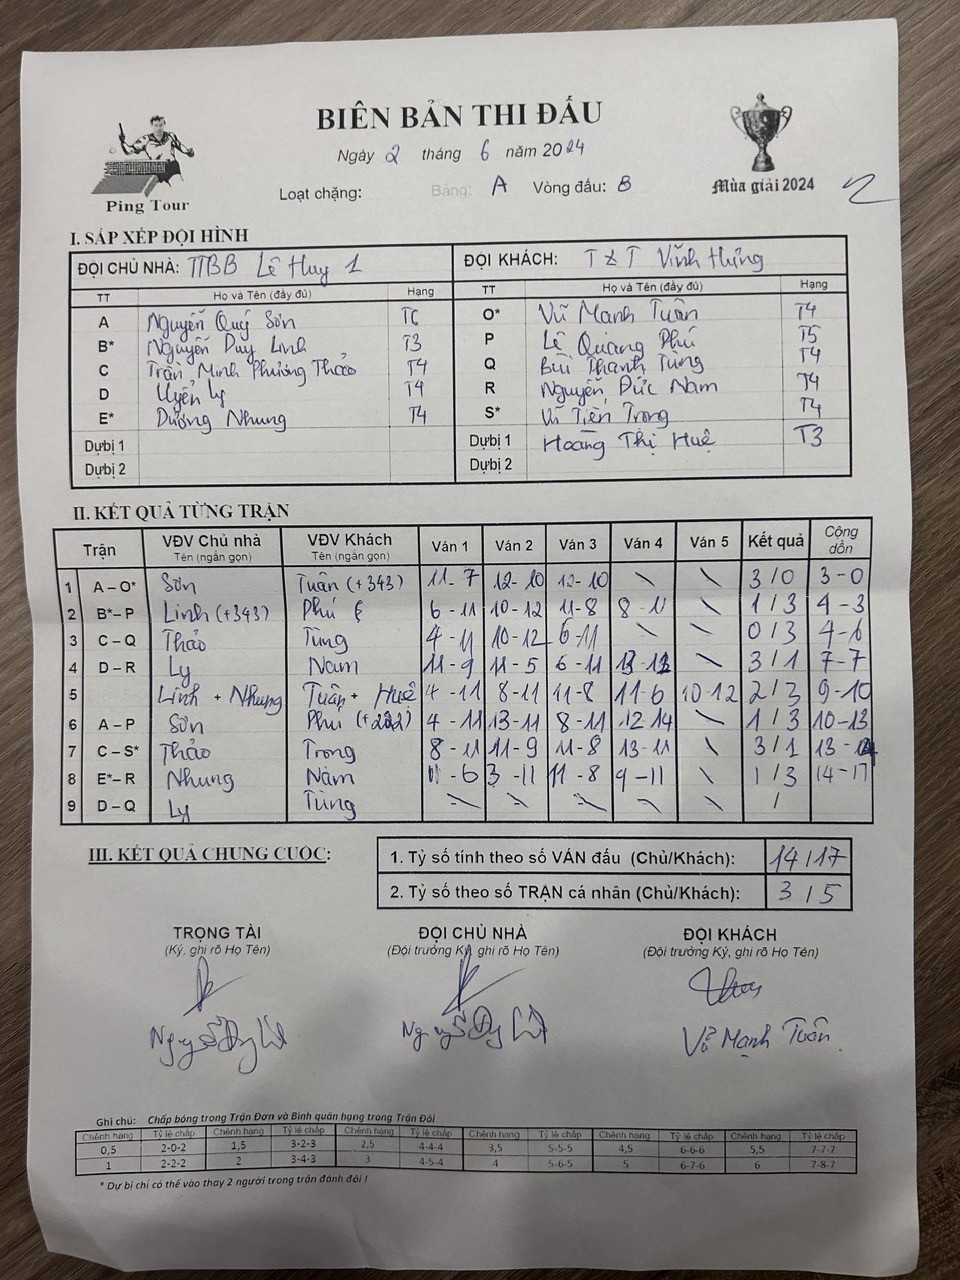 BIÊN BẢN THI ĐẤU
Ngày 2 tháng 6 năm 2024
Loạt chặng: Bảng: A Vòng đấu: 8
Ping Tour
Mùa giải 2024
I. SẮP XẾP ĐỘI HÌNH
ĐỘI CHỦ NHÀ: TTBB Lê Huy 1 ĐỘI KHÁCH: T&T Vĩnh Hưng
TT Họ và Tên (đầy đủ) Hạng TT Họ và Tên (đầy đủ) Hạng
A Nguyễn Quý Sơn T6 O* Vũ Mạnh Tuân T4
B* Nguyễn Duy Linh T3 P Lê Quang Phú T5
C Trần Minh Phương Thảo T4 Q Bùi Thanh Tùng T4
D Uyển Ly T4 R Nguyễn Đức Nam T4
E* Dương Nhung T4 S* Vũ Tiến Trong T4
Dự bị 1 Dự bị 1 Hoàng Thị Huê T3
Dự bị 2 Dự bị 2
II. KẾT QUẢ TỪNG TRẬN
Trận VĐV Chủ nhà Tên (ngắn gọn) VĐV Khách Tên (ngắn gọn) Ván 1 Ván 2 Ván 3 Ván 4 Ván 5 Kết quả Cộng dồn
1 A – O* Sơn Tuân (+343) 11-7 12-10 12-10 \ \ 3/0 3-0
2 B* – P Linh (+343) Phú 6-11 10-12 11-8 8-11 \ 1/3 4-3
3 C – Q Thảo Tùng 4-11 10-12 6-11 \ \ 0/3 4-6
4 D – R Ly Nam 11-9 11-5 6-11 \ 3/1 7-7
5 Linh + Nhung Tuân + Huê 4-11 8-11 11-8 11-6 10-12 2/3 9-10
6 A – P Sơn Phú (+222) 4-11 13-11 8-11 12-14 \ 1/3 10-13
7 C – S* Thảo Trong 8-11 11-9 11-8 13-11 \ 3/1 13-14
8 E* – R Nhung Nam 11-6 3-11 11-8 9-11 \ 1/3 14-17
9 D – Q Ly Tùng \ \ \ \ \ /
III. KẾT QUẢ CHUNG CUỘC:
1. Tỷ số tính theo số VÁN đấu (Chủ/Khách): 14/17
2. Tỷ số theo số TRẬN cá nhân (Chủ/Khách): 3/5
TRỌNG TÀI ĐỘI CHỦ NHÀ ĐỘI KHÁCH
(Ký, ghi rõ Họ Tên) (Đội trưởng Ký, ghi rõ Họ Tên) (Đội trưởng Ký, ghi rõ Họ Tên)
Vũ Mạnh Tuân
Ghi chú: Chấp bóng trong Trận Đơn và Bình quân hạng trong Trận Đôi
Chênh hạng Tỷ lệ chấp Chênh hạng Tỷ lệ chấp Chênh hạng Tỷ lệ chấp Chênh hạng Tỷ lệ chấp Chênh hạng Tỷ lệ chấp Chênh hạng Tỷ lệ chấp
0,5 2-0-2 1,5 3-2-3 2,5 4-4-4 3,5 5-5-5 4,5 6-6-6 5,5 7-7-7
1 2-2-2 2 3-4-3 3 4-5-4 4 5-6-5 5 6-7-6 6 7-8-7
* Dự bị chỉ có thể vào thay 2 người trong trận đánh đôi !